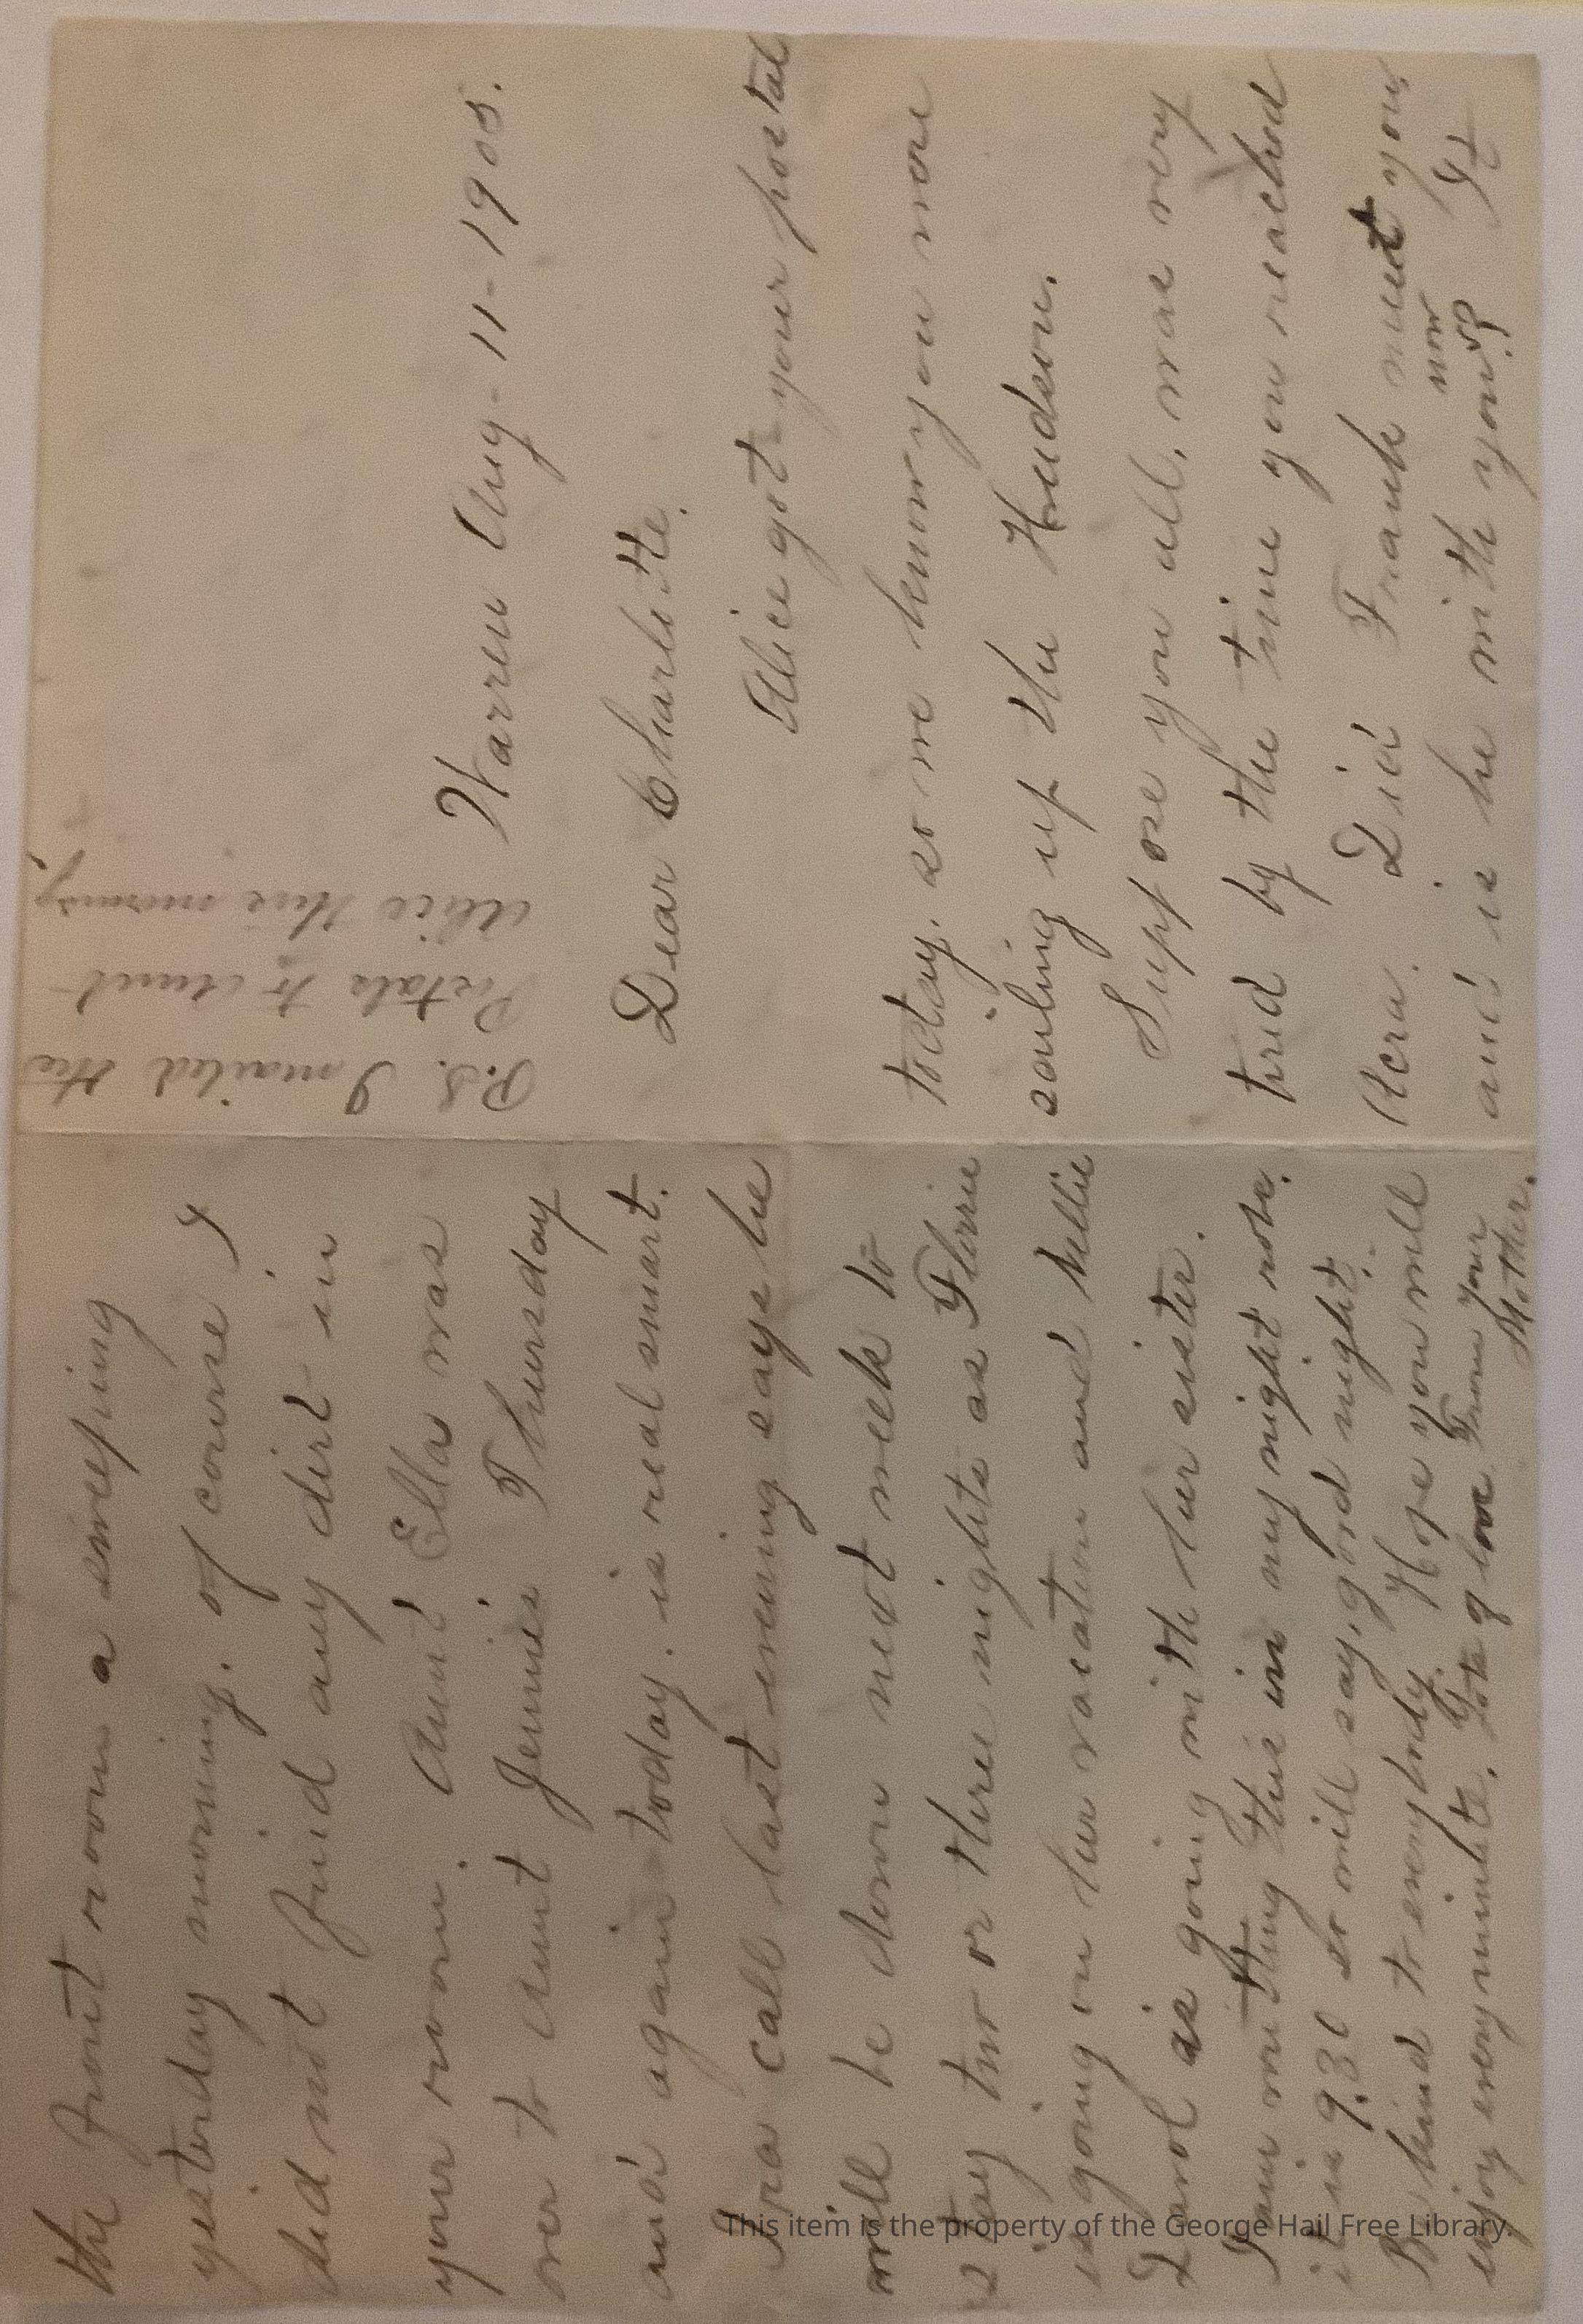 Warren Aug-11-1908.
Dear Charlotte.
Alice got your postal
today. so we know you were
sailing up the Hudson.
Suppose you all, was very
tired by the time you reached
Acra. Did Frank meet you,
and is he with you now? It
P.S. I mailed the
Postals to Aunt
Alice this morning,
the front room a sweeping
yesterday morning. of course I
did not find any dirt in
your room. Aunt Ella was
over to Aunt Jennies Thursday
and again today. is real smart.
Ira call last evening says he
will be down next week to
stay two or three nights as Florrie
is going on her vacation and Nellie
Carol is going with her sister.
I am writing this in my night robe.
it is 9.30 so will say, good night.
Be kind to everybody. Hope you will
enjoy every minute. Lots of love From your
Mother.
This item is the property of the George Hail Free Library.